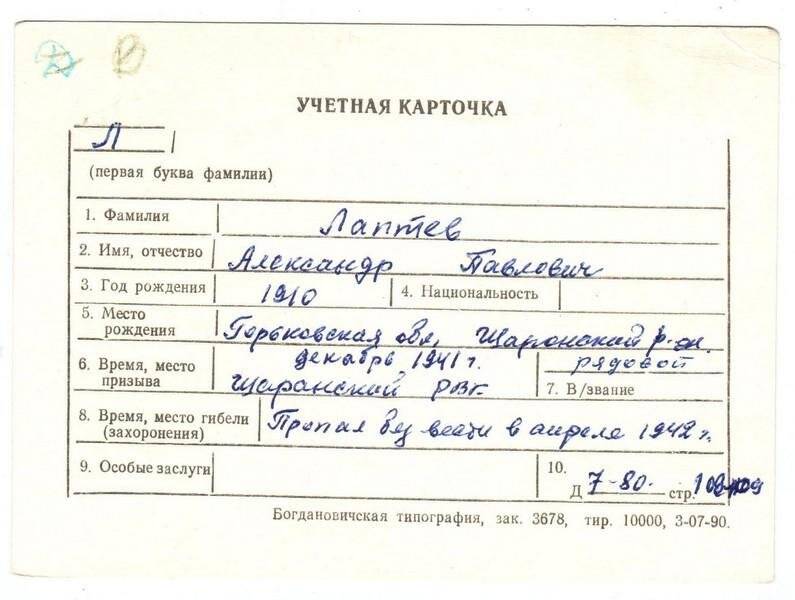 УЧЕТНАЯ КАРТОЧКА
Л
(первая буква фамилии)
1. Фамилия Лаптев
2. Имя, отчество Александр Павлович
3. Год рождения 1910 4. Национальность
5. Место рождения Горьковская обл, Щаронский р-он.
6. Время, место призыва декабрь 1941 г. Щаранский РВК
рядовой
7. В/звание
8. Время, место гибели (захоронения) Пропал без вести в апреле 1942 г.
9. Особые заслуги
10.
Д 7-80. стр.
Богдановичская типография, зак. 3678, тир. 10000, 3-07-90.